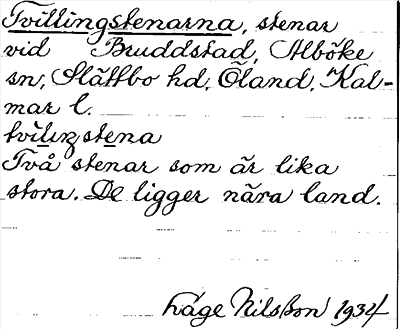 Tvillingstenarna, stenar
vid Bruddstad, Alböke
sn, Slättbo hd, Öland, Kal-
mar l.
tvilıŋstena
Två stenar som är lika
stora. De ligger nära land.
Låge Nilsson 1934